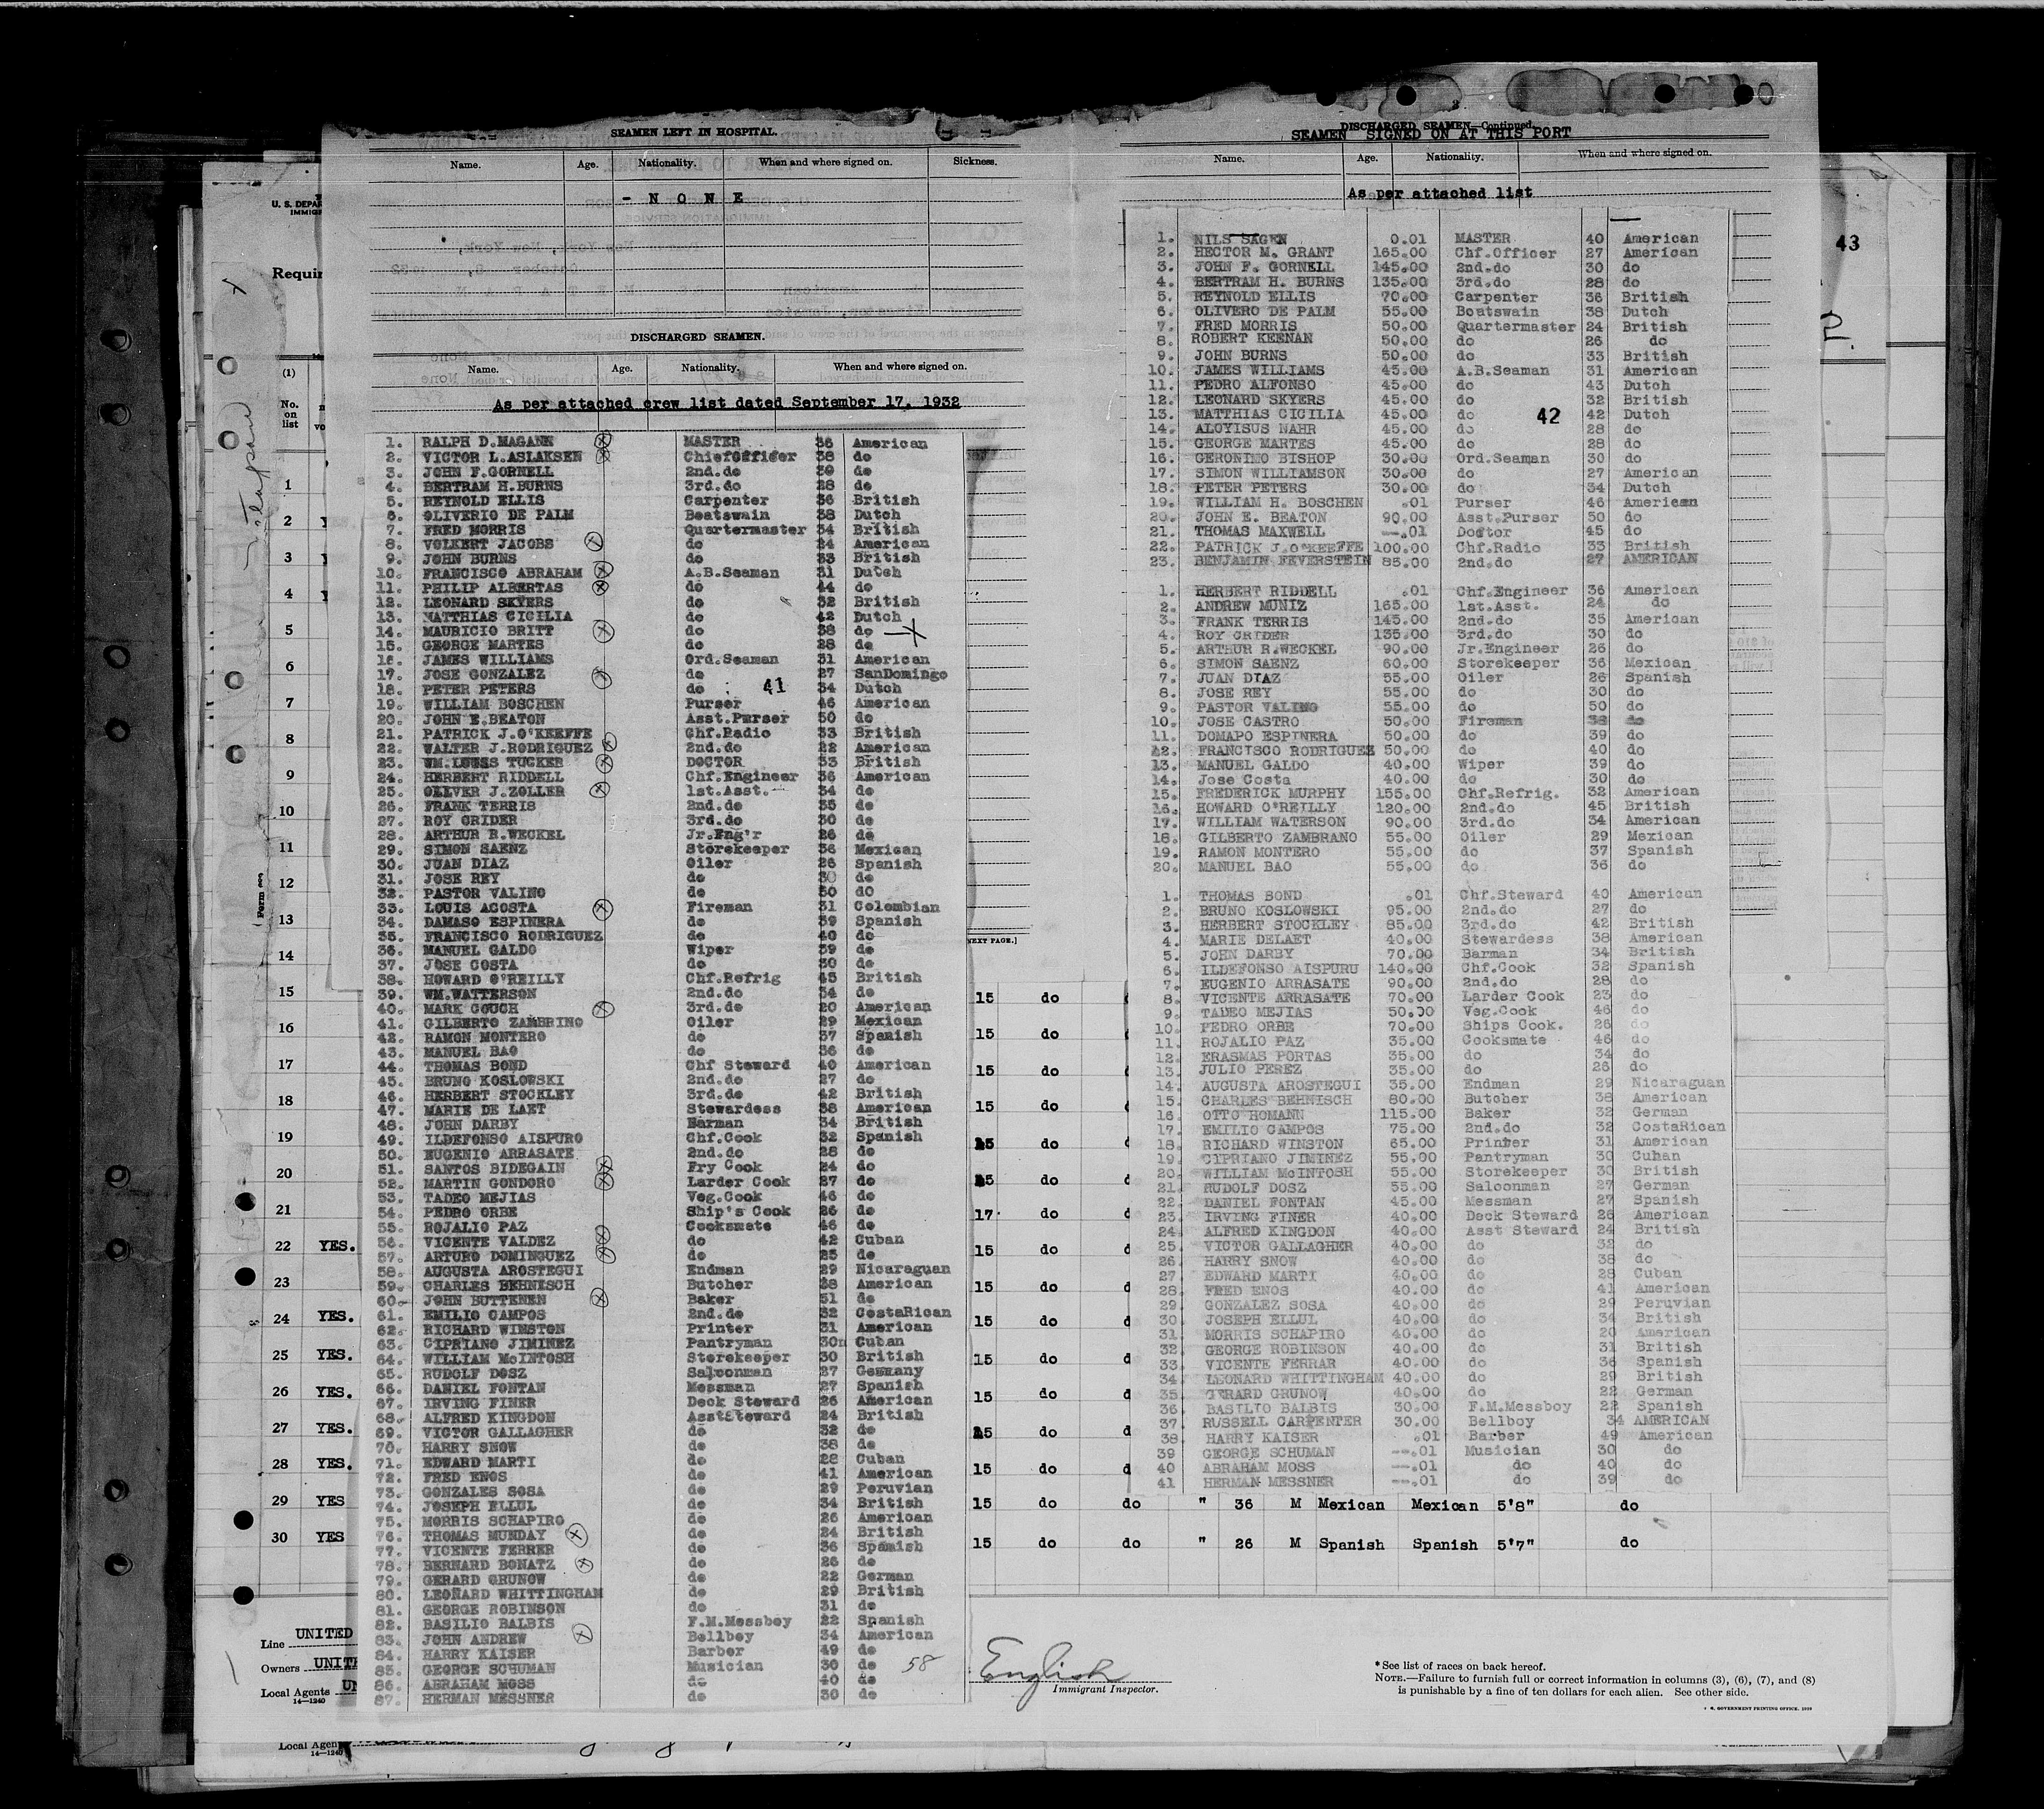 SEAMEN LEFT IN HOSPITAL.
Name. Age. Nationality. When and where signed on. Sickness.
- N O N E
DISCHARGED SEAMEN.
Name. Age. Nationality. When and where signed on.
As per attached crew list dated September 17, 1932
1. RALPH D.MAGANN MASTER 36 American
2. VICTOR L.ASLAKSEN ChiefOfficer 38 do
3. JOHN F.GORNELL 2nd.do 30 do
4. BERTRAM H.BURNS 3rd.do 28 do
5. REYNOLD ELLIS Carpenter 36 British
6. OLIVERIO DE PALM Boatswain 38 Dutch
7. FRED MORRIS Quartermaster 34 British
8. VOLKERT JACOBS do 24 American
9. JOHN BURNS do 33 British
10. FRANCISCO ABRAHAM A.B.Seaman 31 Dutch
11. PHILIP ALBERTAS do 44 do
12. LEONARD SKYERS do 32 British
13. MATTHIAS CICILIA do 42 Dutch
14. MAURICIO BRITT do 38 do
15. GEORGE MARTES do 28 do
16. JAMES WILLIAMS Ord.Seaman 31 American
17. JOSE GONZALEZ do 27 SanDomingo
18. PETER PETERS do 41 34 Dutch
19. WILLIAM BOSCHEN Purser 46 American
20. JOHN E.BEATON Asst.Purser 50 do
21. PATRICK J.O'KEEFFE Chf.Radio 33 British
22. WALTER J.RODRIGUEZ 2nd.do 22 American
23. WM.LOUSS TUCKER DOCTOR 53 British
24. HERBERT RIDDELL Chf.Engineer 36 American
25. OLIVER J.ZOLLER 1st.Asst. 34 do
26. FRANK TERRIS 2nd.do 35 do
27. ROY CRIDER 3rd.do 30 do
28. ARTHUR R.WECKEL Jr.Eng'r 26 do
29. SIMON SAENZ Storekeeper 36 Mexican
30. JUAN DIAZ Oiler 26 Spanish
31. JOSE REY do 30 do
32. PASTOR VALINO do 50 do
33. LOUIS ACOSTA Fireman 31 Colombian
34. DAMASO ESPINERA do 39 Spanish
35. FRANCISCO RODRIGUEZ do 40 do
36. MANUEL GALDO Wiper 39 do
37. JOSE COSTA do 30 do
38. HOWARD O'REILLY Chf.Refrig 45 British
39. WM.WATTERSON 2nd.do 34 do
40. MARK GOUCH 3rd.do 20 American
41. GILBERTO ZAMBRINO Oiler 29 Mexican
42. RAMON MONTERO do 37 Spanish
43. MANUEL BAO do 36 do
44. THOMAS BOND Chf Steward 40 American
45. BRUNO KOSLOWSKI 2nd.do 27 do
46. HERBERT STOCKLEY 3rd.do 42 British
47. MARIE DE LAET Stewardess 38 American
48. JOHN DARBY Barman 34 British
49. ILDEFONSO AISPURO Chf.Cook 32 Spanish
50. EUGENIO ARRASATE 2nd.do 28 do
51. SANTOS BIDEGAIN Fry Cook 24 do
52. MARTIN GONDORO Larder Cook 27 do
53. TADEO MEJIAS Veg.Cook 46 do
54. PEDRO ORBE Ship's Cook 26 do
55. ROJALIO PAZ Cooksmate 46 do
56. VICENTE VALDEZ do 42 Cuban
57. ARTURO DOMINGUEZ do 25 do
58. AUGUSTA AROSTEGUI Endman 29 Nicaraguan
59. CHARLES BEHNISCH Butcher 38 American
60. JOHN BUTTENEN Baker 51 do
61. EMILIO CAMPOS 2nd.do 32 CostaRican
62. RICHARD WINSTON Printer 31 American
63. CIPRIANO JIMINEZ Pantryman 30n Cuban
64. WILLIAM McINTOSH Storekeeper 30 British
65. RUDOLF DOSZ Saloonman 27 Germany
66. DANIEL FONTAN Messman 27 Spanish
67. IRVING FINER Deck Steward 26 American
68. ALFRED KINGDON AsstSteward 24 British
69. VICTOR GALLAGHER do 32 do
70. HARRY SNOW do 38 do
71. EDWARD MARTI do 28 Cuban
72. FRED ENOS do 41 American
73. GONZALES SOSA do 29 Peruvian
74. JOSEPH ELLUL do 34 British
75. MORRIS SCHAPIRO do 26 American
76. THOMAS MUNDAY do 24 British
77. VICENTE FERRER do 36 Spanish
78. BERNARD BONATZ do 26 do
79. GERARD GRUNOW do 22 German
80. LEONARD WHITTINGHAM do 29 British
81. GEORGE ROBINSON do 31 do
82. BASILIO BALBIS F.M.Messboy 22 Spanish
83. JOHN ANDREW Bellboy 34 American
84. HARRY KAISER Barber 49 do
85. GEORGE SCHUMAN Musician 30 do 58
86. ABRAHAM MOSS do 40 do
87. HERMAN MESSNER do 30 do
DISCHARGED SEAMEN—Continued.
SEAMEN SIGNED ON AT THIS PORT
Name. Age. Nationality. When and where signed on.
As per attached list
1. NILS SAGEN 0.01 MASTER 40 American
2. HECTOR M. GRANT 165.00 Chf.Officer 27 American
3. JOHN F. GORNELL 145.00 2nd.do 30 do
4. BERTRAM H. BURNS 135.00 3rd.do 28 do
5. REYNOLD ELLIS 70.00 Carpenter 36 British
6. OLIVERO DE PALM 55.00 Boatswain 38 Dutch
7. FRED MORRIS 50.00 Quartermaster 24 British
8. ROBERT KEENAN 50.00 do 26 do
9. JOHN BURNS 50.00 do 33 British
10. JAMES WILLIAMS 45.00 A.B.Seaman 31 American
11. PEDRO ALFONSO 45.00 do 43 Dutch
12. LEONARD SKYERS 45.00 do 32 British
13. MATTHIAS CICILIA 45.00 do 42 42 Dutch
14. ALOYISUS NAHR 45.00 do 28 do
15. GEORGE MARTES 45.00 do 28 do
16. GERONIMO BISHOP 30.00 Ord.Seaman 30 do
17. SIMON WILLIAMSON 30.00 do 27 American
18. PETER PETERS 30.00 do 34 Dutch
19. WILLIAM H. BOSCHEN .01 Purser 46 American
20. JOHN E. BEATON 90.00 Asst.Purser 50 do
21. THOMAS MAXWELL --.01 Doctor 45 do
22. PATRICK J.O'KEEFFE 100.00 Chf.Radio 33 British
23. BENJAMIN FEVERSTEIN 85.00 2nd.do 27 AMERICAN
1. HERBERT RIDDELL .01 Chf.Engineer 36 American
2. ANDREW MUNIZ 165.00 1st.Asst. 24 do
3. FRANK TERRIS 145.00 2nd.do 35 American
4. ROY CRIDER 135.00 3rd.do 30 do
5. ARTHUR R.WECKEL 90.00 Jr.Engineer 26 do
6. SIMON SAENZ 60.00 Storekeeper 36 Mexican
7. JUAN DIAZ 55.00 Oiler 26 Spanish
8. JOSE REY 55.00 do 30 do
9. PASTOR VALINO 55.00 do 50 do
10. JOSE CASTRO 50.00 Fireman 38 do
11. DOMAPO ESPINERA 50.00 do 39 do
12. FRANCISCO RODRIGUEZ 50.00 do 40 do
13. MANUEL GALDO 40.00 Wiper 39 do
14. Jose Costa 40.00 do 30 do
15. FREDERICK MURPHY 155.00 Chf.Refrig. 32 American
16. HOWARD O'REILLY 120.00 2nd.do 45 British
17. WILLIAM WATERSON 90.00 3rd.do 34 American
18. GILBERTO ZAMBRANO 55.00 Oiler 29 Mexican
19. RAMON MONTERO 55.00 do 37 Spanish
20. MANUEL BAO 55.00 do 36 do
1. THOMAS BOND .01 Chf.Steward 40 American
2. BRUNO KOSLOWSKI 95.00 2nd.do 27 do
3. HERBERT STOCKLEY 85.00 3rd.do 42 British
4. MARIE DELAET 40.00 Stewardess 38 American
5. JOHN DARBY 70.00 Barman 34 British
6. ILDEFONSO AISPURU 140.00 Chf.Cook 32 Spanish
7. EUGENIO ARRASATE 90.00 2nd.do 28 do
8. VICENTE ARRASATE 70.00 Larder Cook 23 do
9. TADEO MEJIAS 50.00 Veg.Cook 46 do
10. PEDRO ORBE 70.00 Ships Cook. 26 do
11. ROJALIO PAZ 35.00 Cooksmate 46 do
12. ERASMAS PORTAS 35.00 do 34 do
13. JULIO PEREZ 35.00 do 26 do
14. AUGUSTA AROSTEGUI 35.00 Endman 29 Nicaraguan
15. CHARLES BEHNISCH 80.00 Butcher 38 American
16. OTTO HOMANN 115.00 Baker 32 German
17. EMILIO CAMPOS 75.00 2nd.do 32 CostaRican
18. RICHARD WINSTON 65.00 Printer 31 American
19. CIPRIANO JIMINEZ 55.00 Pantryman 30 Cuban
20. WILLIAM McINTOSH 55.00 Storekeeper 30 British
21. RUDOLF DOSZ 55.00 Saloonman 27 German
22. DANIEL FONTAN 45.00 Messman 27 Spanish
23. IRVING FINER 40.00 Deck Steward 26 American
24. ALFRED KINGDON 40.00 Asst Steward 24 British
25. VICTOR GALLAGHER 40.00 do 32 do
26. HARRY SNOW 40.00 do 38 do
27 EDWARD MARTI 40.00 do 28 Cuban
28. FRED ENOS 40.00 do 41 American
29 GONZALEZ SOSA 40.00 do 29 Peruvian
30 JOSEPH ELLUL 40.00 do 34 British
31 MORRIS SCHAPIRO 40.00 do 20 American
32 GEORGE ROBINSON 40.00 do 31 British
33 VICENTE FERRAR 40.00 do 36 Spanish
34 LEONARD WHITTINGHAM 40.00 do 29 British
35 GERARD GRUNOW 40.00 do 22 German
36 BASILIO BALBIS 30.00 F.M.Messboy 22 Spanish
37 RUSSELL CARPENTER 30.00 Bellboy 34 AMERICAN
38 HARRY KAISER .01 Barber 49 American
39 GEORGE SCHUMAN --.01 Musician 30 do
40 ABRAHAM MOSS --.01 do 40 do
41 HERMAN MESSNER --.01 do 39 do
43
U. S. DEPAR
IMMIG
Requir
(1)
No. on list
1
2
3
4
5
6
7
8
9
10
11
12
13
14
NEXT PAGE.]
15 15 do
16 15 do
17 15 do
18 15 do
19 15 do
20 15 do
21 17 do
22 YES. 15 do
23 15 do
24 YES. 15 do
25 YES. 15 do
26 YES. 15 do
27 YES. 15 do
28 YES. 15 do
29 YES 15 do do " 36 M Mexican Mexican 5'8" do
30 YES 15 do do " 26 M Spanish Spanish 5'7" do
Line UNITED
Owners UNITE
Local Agents UN
14-1240
English
Immigrant Inspector.
* See list of races on back hereof.
NOTE.—Failure to furnish full or correct information in columns (3), (6), (7), and (8)
is punishable by a fine of ten dollars for each alien. See other side.
Local Agen
14-1240